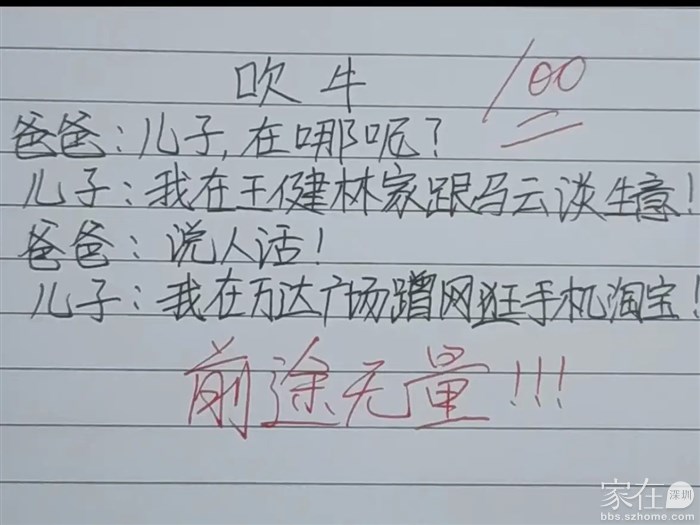 吹牛
100
爸爸:儿子,在哪呢?
儿子:我在王健林家跟马云谈生意!
爸爸:说人话!
儿子:我在万达广场蹭网逛手机淘宝!
前途无量!!!
家在深圳
bbs.szhome.com